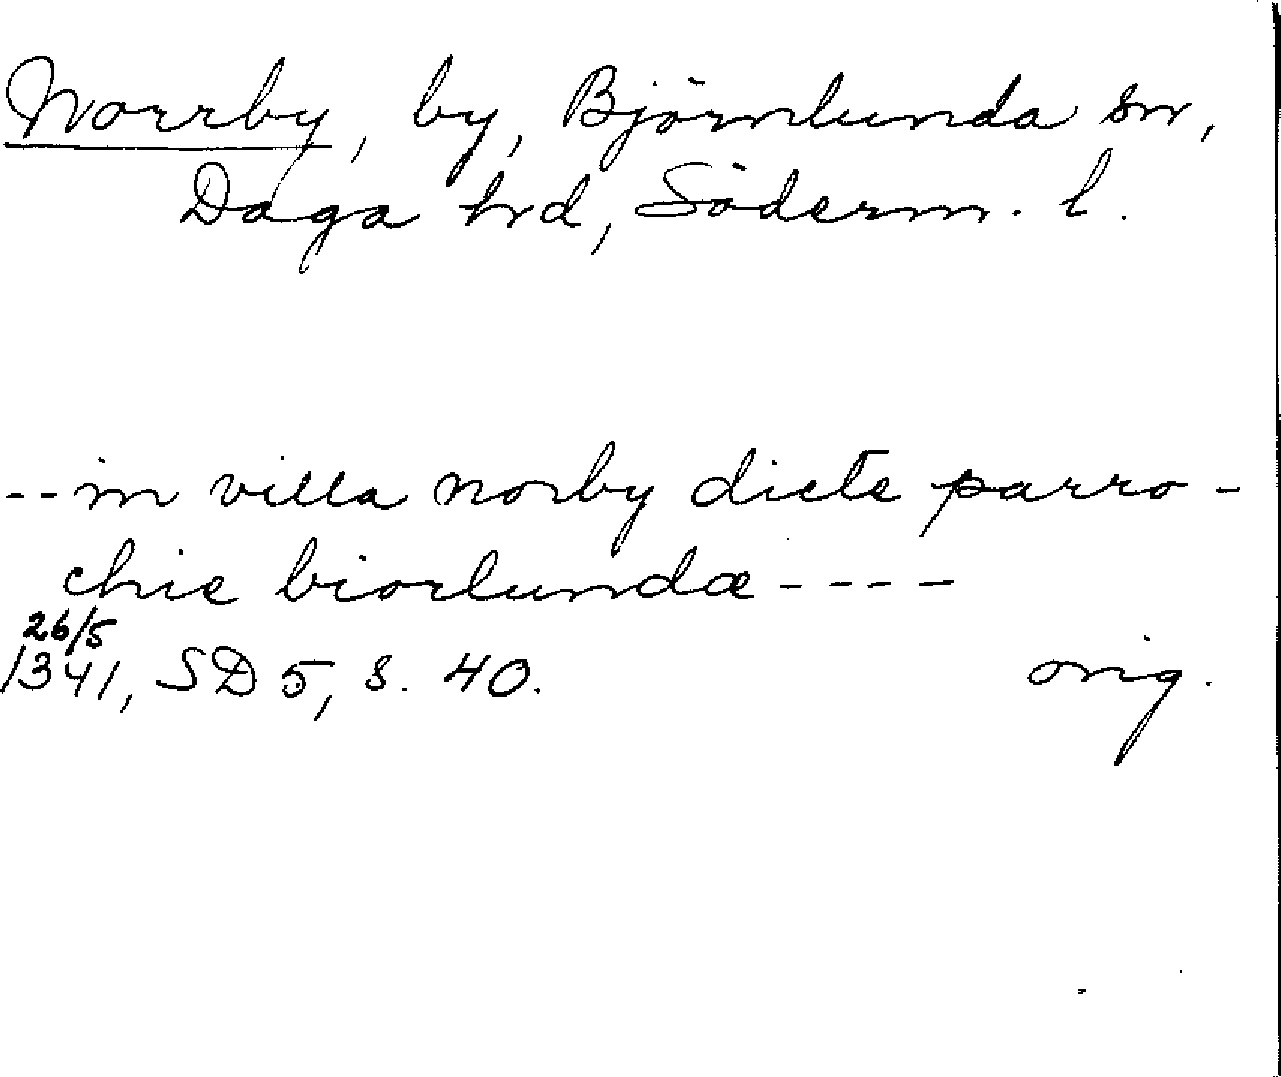 Norrby, by, Björnlunda sn,
Daga hrd, Söderm. l.
-- in villa norby dicte parro-
chie biorlundæ ----
26/5
1341, SD 5, s. 40. orig.